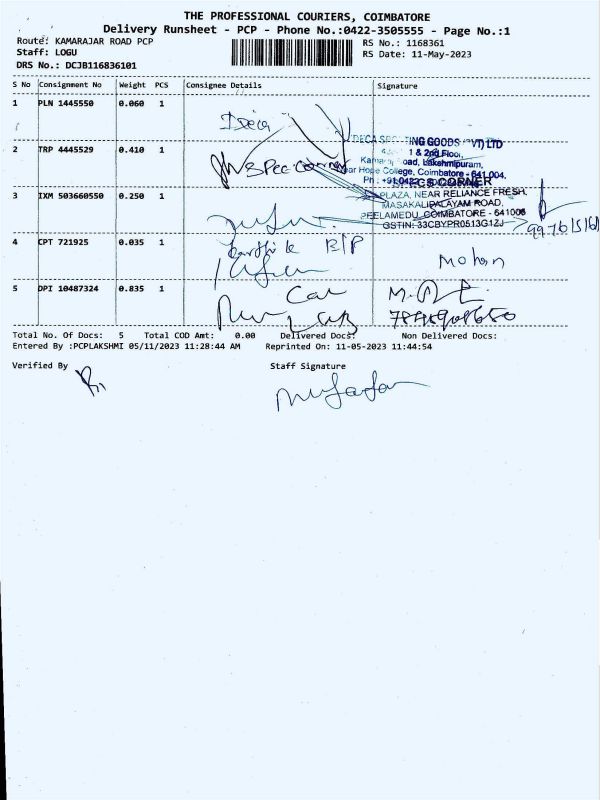 THE PROFESSIONAL COURIERS, COIMBATORE
Delivery Runsheet - PCP - Phone No.:0422-3505555 - Page No.:1
Route: KAMARAJAR ROAD PCP
RS No.: 1168361
Staff: LOGU
RS Date: 11-May-2023
DRS No.: DCJB116836101
S No Consignment No Weight PCS Consignee Details Signature
1 PLN 1445550 0.060 1
Deca
DECA SPORTING GOODS (PVT) LTD
2 TRP 4445529 0.410 1
1 & 2nd Floor,
Road, Lakshmipuram,
Near Hope College, Coimbatore - 641 004.
CORNER
3 IXM 503660550 0.250 1
PLAZA, NEAR RELIANCE FRESH,
MASAKALIPALAYAM ROAD,
PEELAMEDU, COIMBATORE - 641006
GSTIN: 33CBYPR0513G1ZJ
4 CPT 721925 0.035 1
Mohan
5 DPI 10487324 0.835 1
Total No. Of Docs: 5 Total COD Amt: 0.00 Delivered Docs: Non Delivered Docs:
Entered By :PCPLAKSHMI 05/11/2023 11:28:44 AM Reprinted On: 11-05-2023 11:44:54
Verified By
Staff Signature